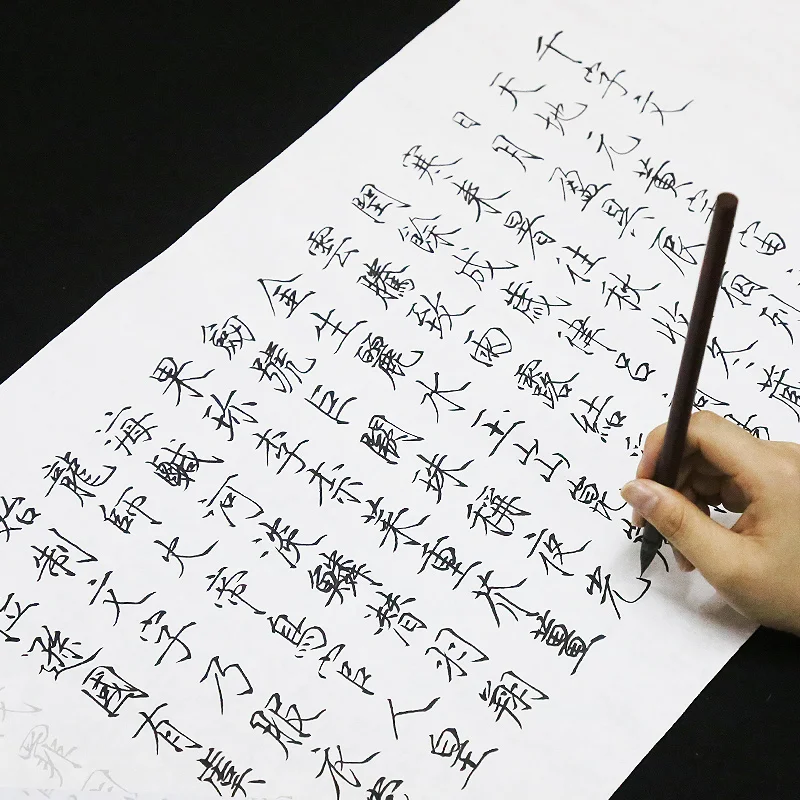 千字文
天地元黃宇宙
日月盈昃辰宿列
寒來暑往秋收冬藏
閏餘成歲律呂
雲騰致雨露結
金生麗水玉出崑
劍號巨闕珠稱夜光
果珍李柰菜重芥薑
海鹹河淡鱗潛羽翔
龍師火帝鳥官人皇
始制文字乃服衣
位遜國有虞